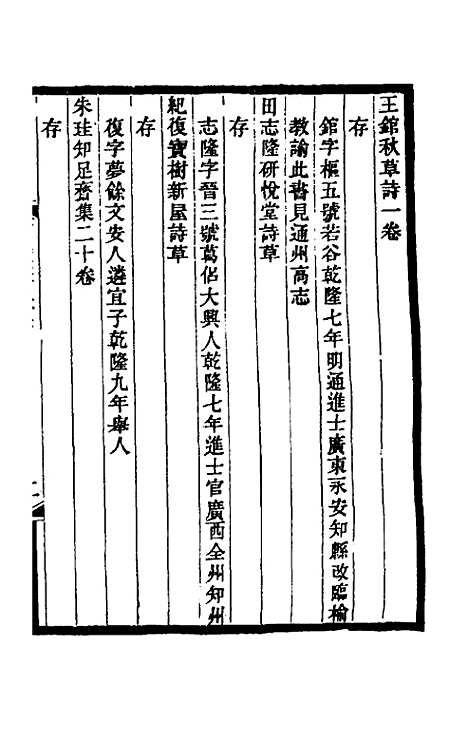 王錧秋草詩一卷
存
錧字樞五號若谷乾隆七年明通進士廣東永安知縣改臨榆
教諭此書見通州高志
田志隆硏悅堂詩草
存
志隆字晉三號葛侶大興人乾隆七年進士官廣西全州知州
紀復寶樹新屋詩草
存
復字夢餘文安人遴宜子乾隆九年舉人
朱珪知足齋集二十卷
存